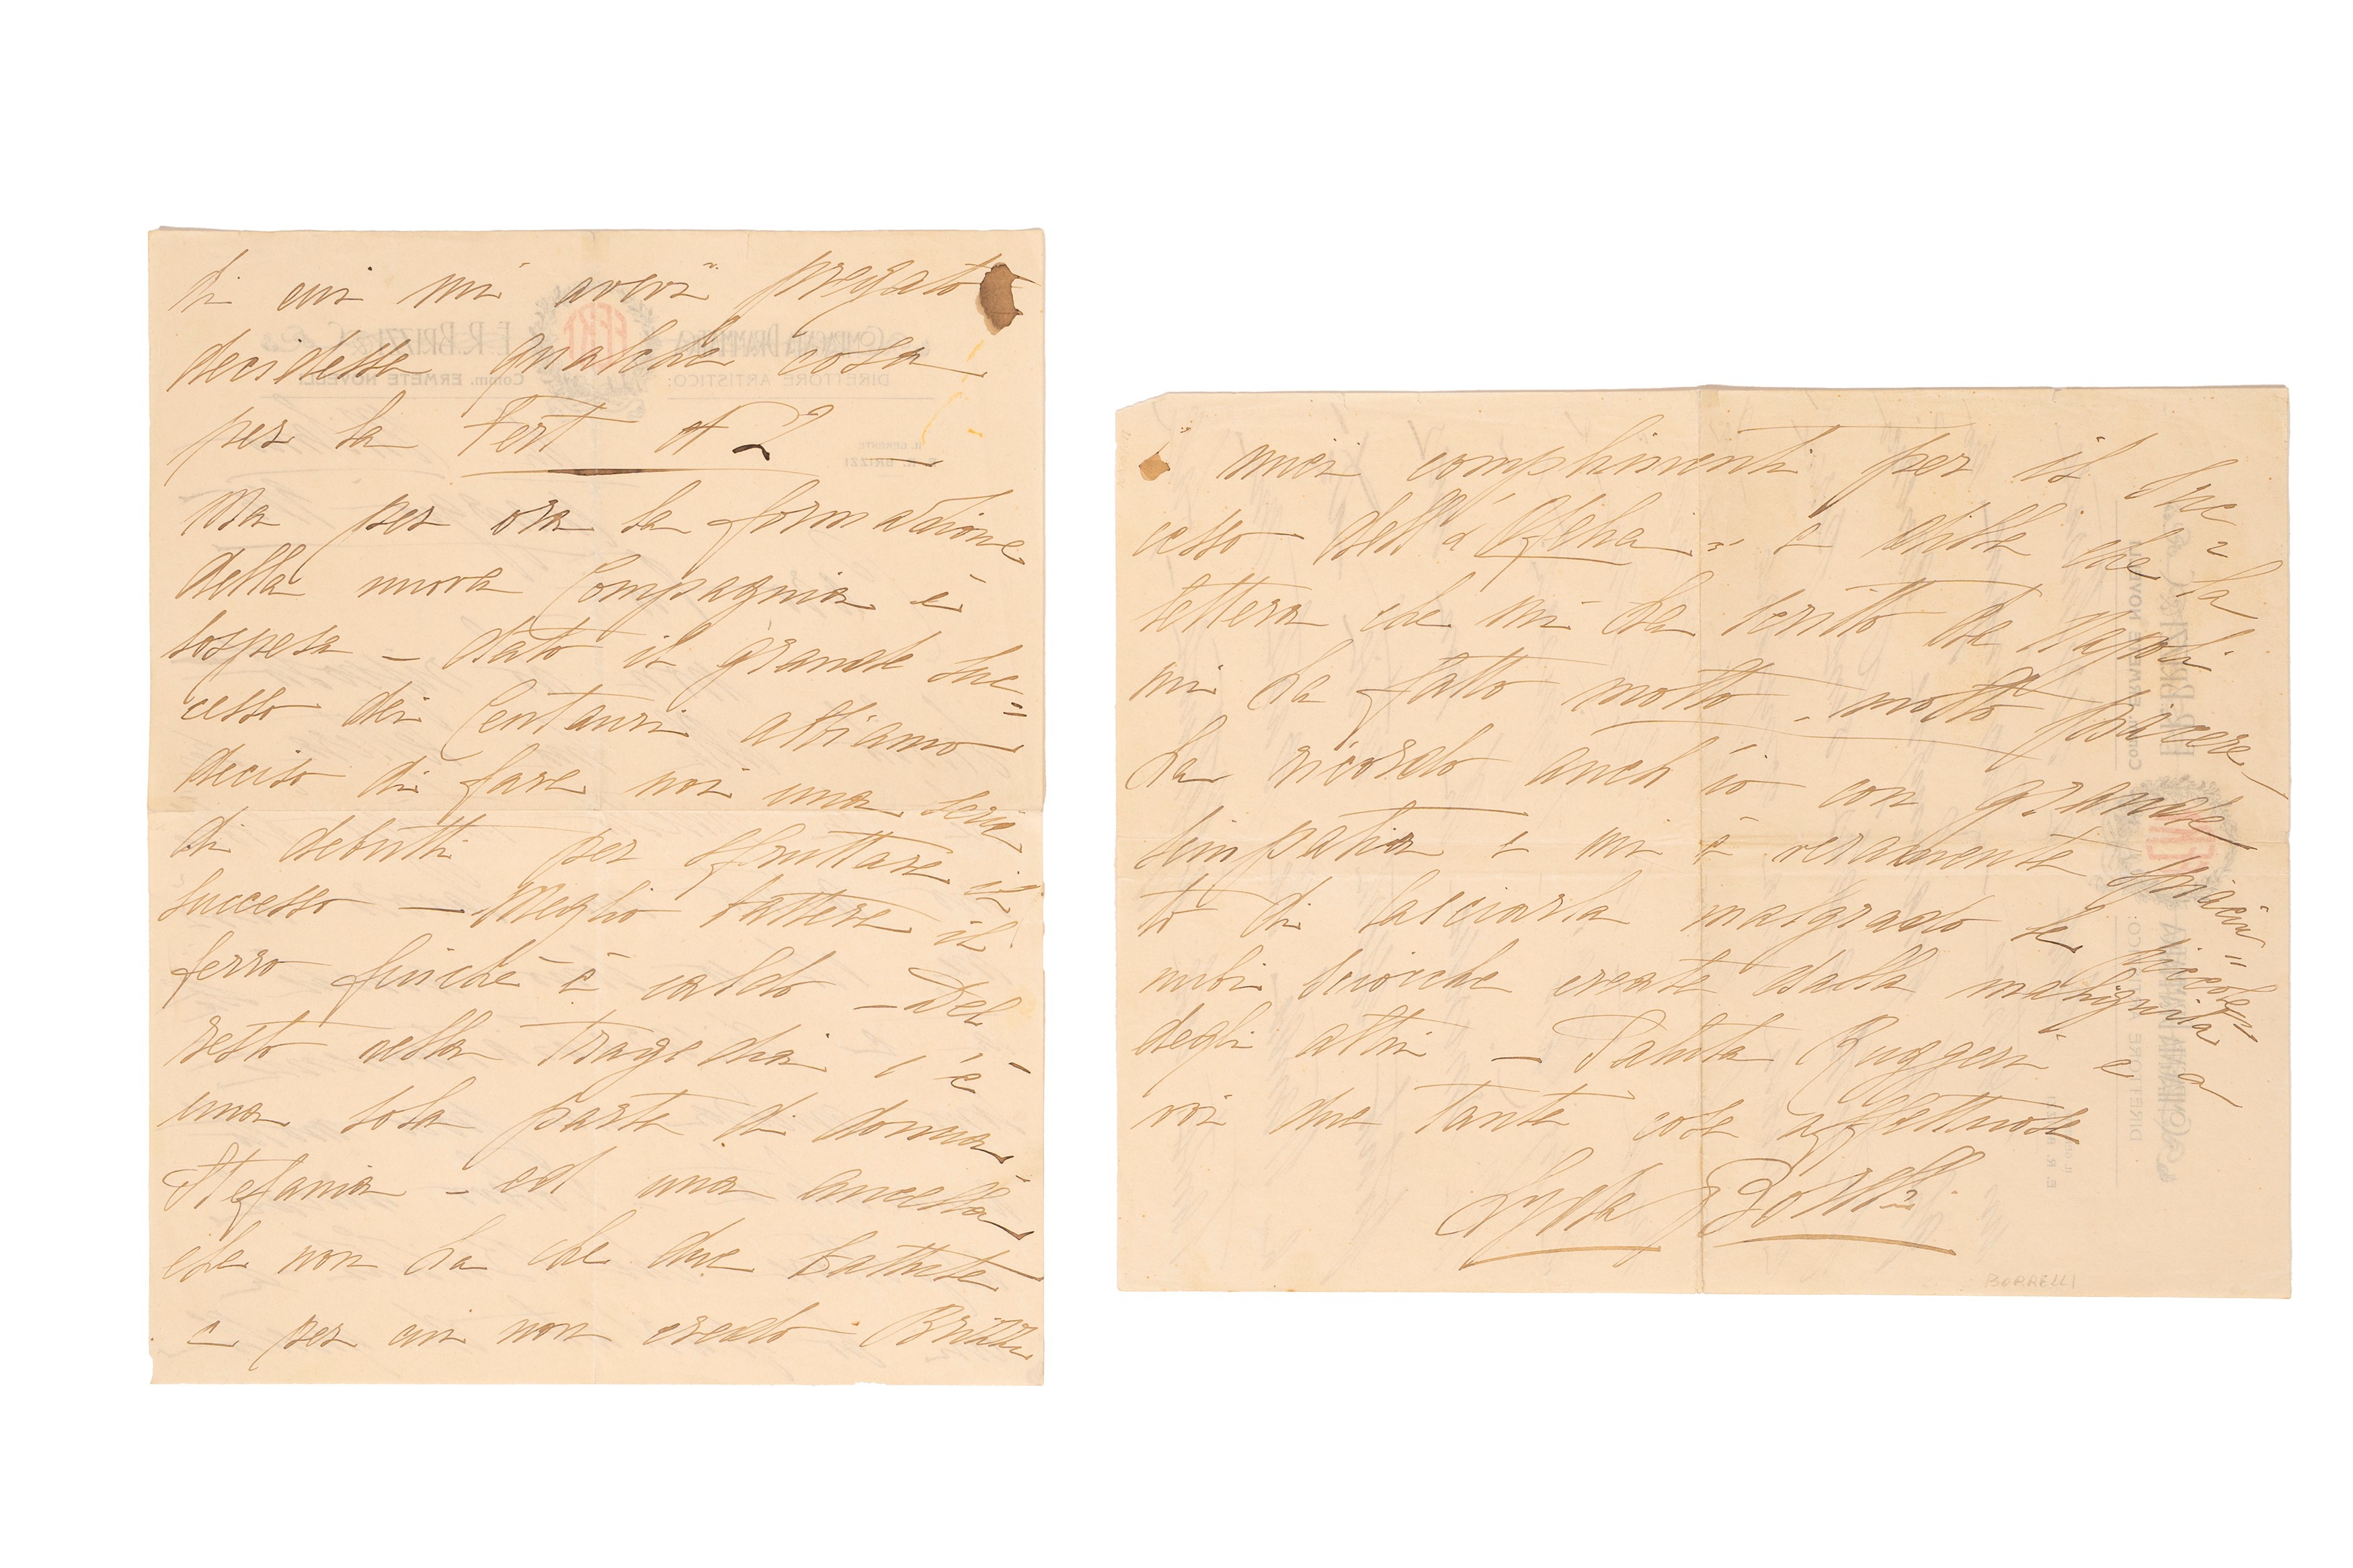 di cui mi aveva pregato
decidesse qualche cosa
per la Fert N 2 —
Ma per ora la formazione
della nuova Compagnia è
sospesa — dato il grande suc=
cesso dei Centauri abbiamo
deciso di fare noi una serie
di debutti per sfruttare il
successo — Meglio battere il
ferro finchè è caldo — Del
resto nella tragedia c'è
una sola parte di donna
Stefania — ed una ancella
che non ha che due battute
e per cui non credo Brizzi
i miei complimenti per il suc=
cesso dell' "Ofelia" e dille che la
lettera che mi ha scritto da Napoli
mi ha fatto molto, molto piacere
La ricordo anch'io con grande
simpatia e mi è veramente spiaciu=
to di lasciarla malgrado le piccole
nubi sciocche create dalla malignità
degli altri — Saluta Ruggeri e a
voi due tante cose affettuose
Lyda Borelli
BORRELLI
COMPAGNIA DRAMMATICA FERT E. R. BRIZZI & C.
DIRETTORE ARTISTICO: Comm. ERMETE NOVELLI
IL GERENTE
E. R. BRIZZI